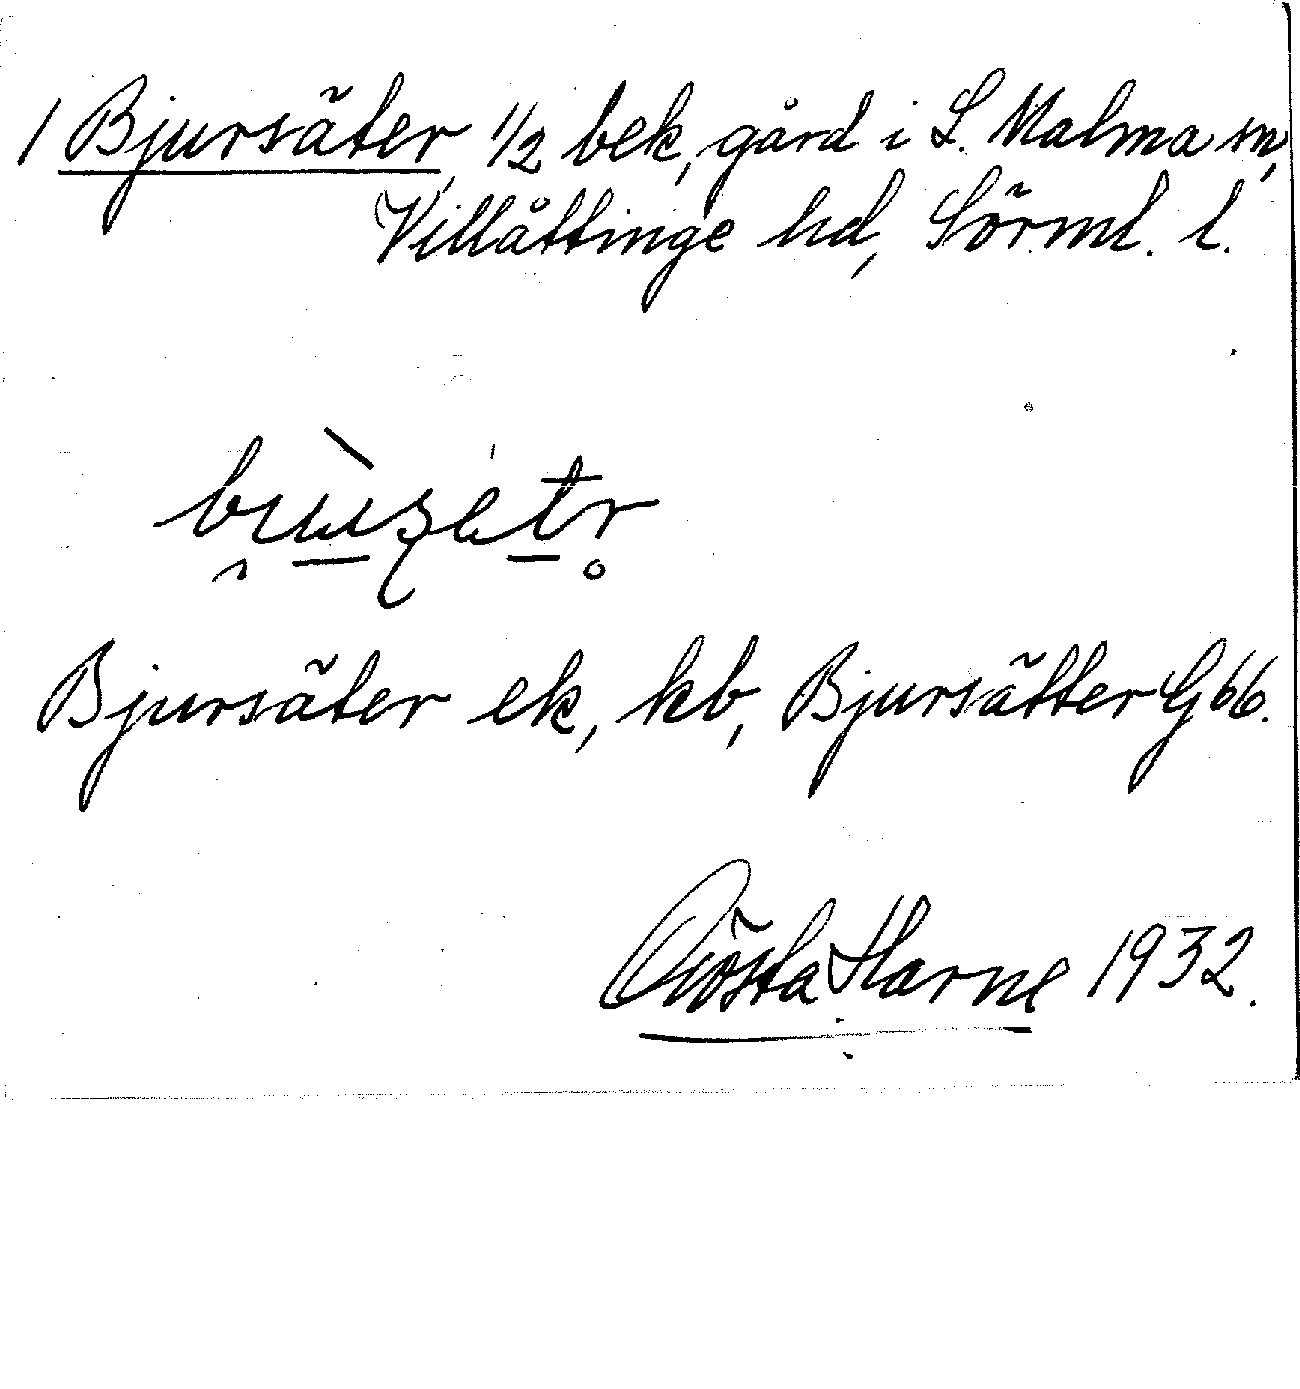 1 Bjursäter, 1/2 bek, gård i L. Malma sn,
Villåttinge hd, Sörml. l.
Bjursäter ek, kb, Bjursätter G66.
Gösta Harne 1932.